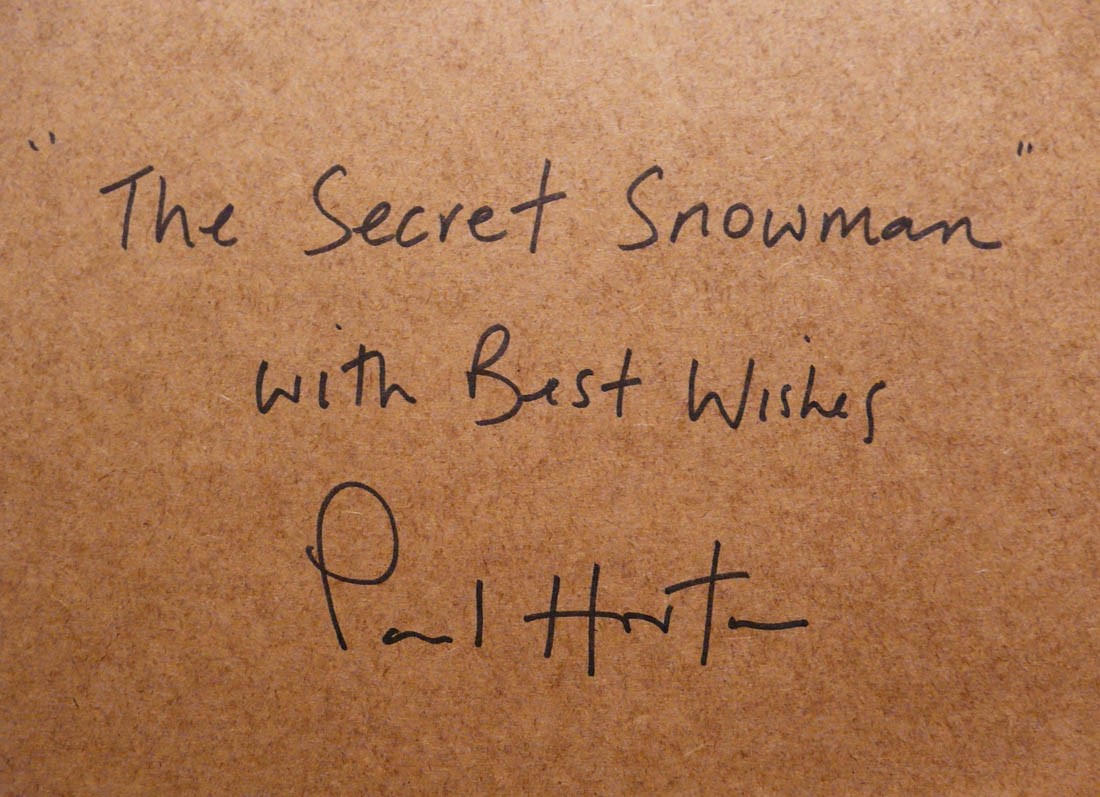 "The Secret Snowman"
with Best Wishes
Paul Horton